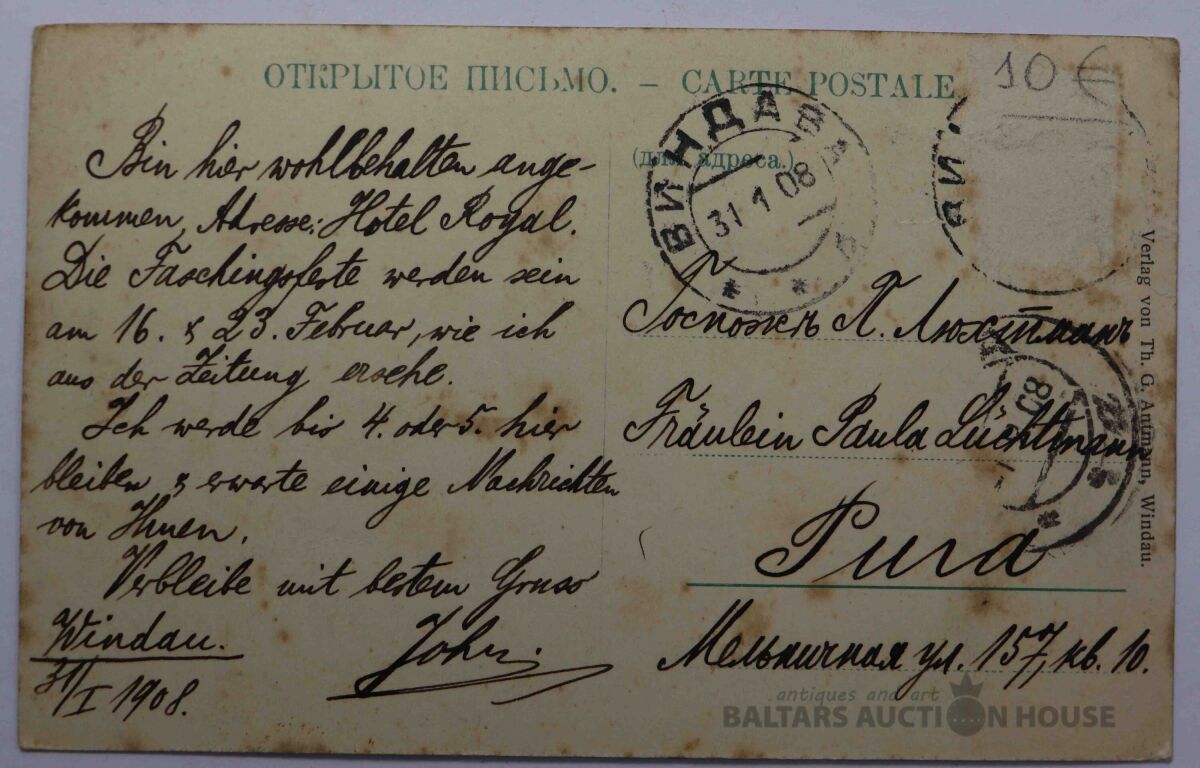 ОТКРЫТОЕ ПИСЬМО. – CARTE POSTALE.
(для адреса.)
10 €
ВИНДАВА
31 1 08
Bin hier wohlbehalten ange-
kommen, Adresse: Hotel Royal.
Die Faschingsfeste werden sein
am 16. & 23. Februar, wie ich
aus der Zeitung ersehe.
Ich werde bis 4. oder 5. hier
bleiben & erwarte einige Nachrichten
von Ihnen.
Verbleibe mit bestem Gruss
John.
Windau.
31/I 1908.
Госпожѣ П. Люхтманъ
Fräulein Paula Lüchtmann
Рига
Мельничная ул. 157, кв. 10.
Verlag von Th. G. Antmann, Windau.
08
antiques and art
BALTARS AUCTION HOUSE